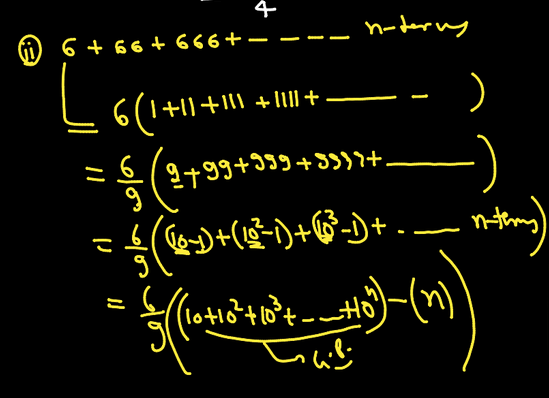 4
(ii) 6 + 66 + 666 + - - - - n-terms
6 ( 1 + 11 + 111 + 1111 + —— - )
= 6/9 ( 9 + 99 + 999 + 9999 + —— )
= 6/9 ( (10-1) + (10²-1) + (10³-1) + - —— n-terms )
= 6/9 ( (10 + 10² + 10³ + - - - + 10ⁿ) - (n) )
G.P.